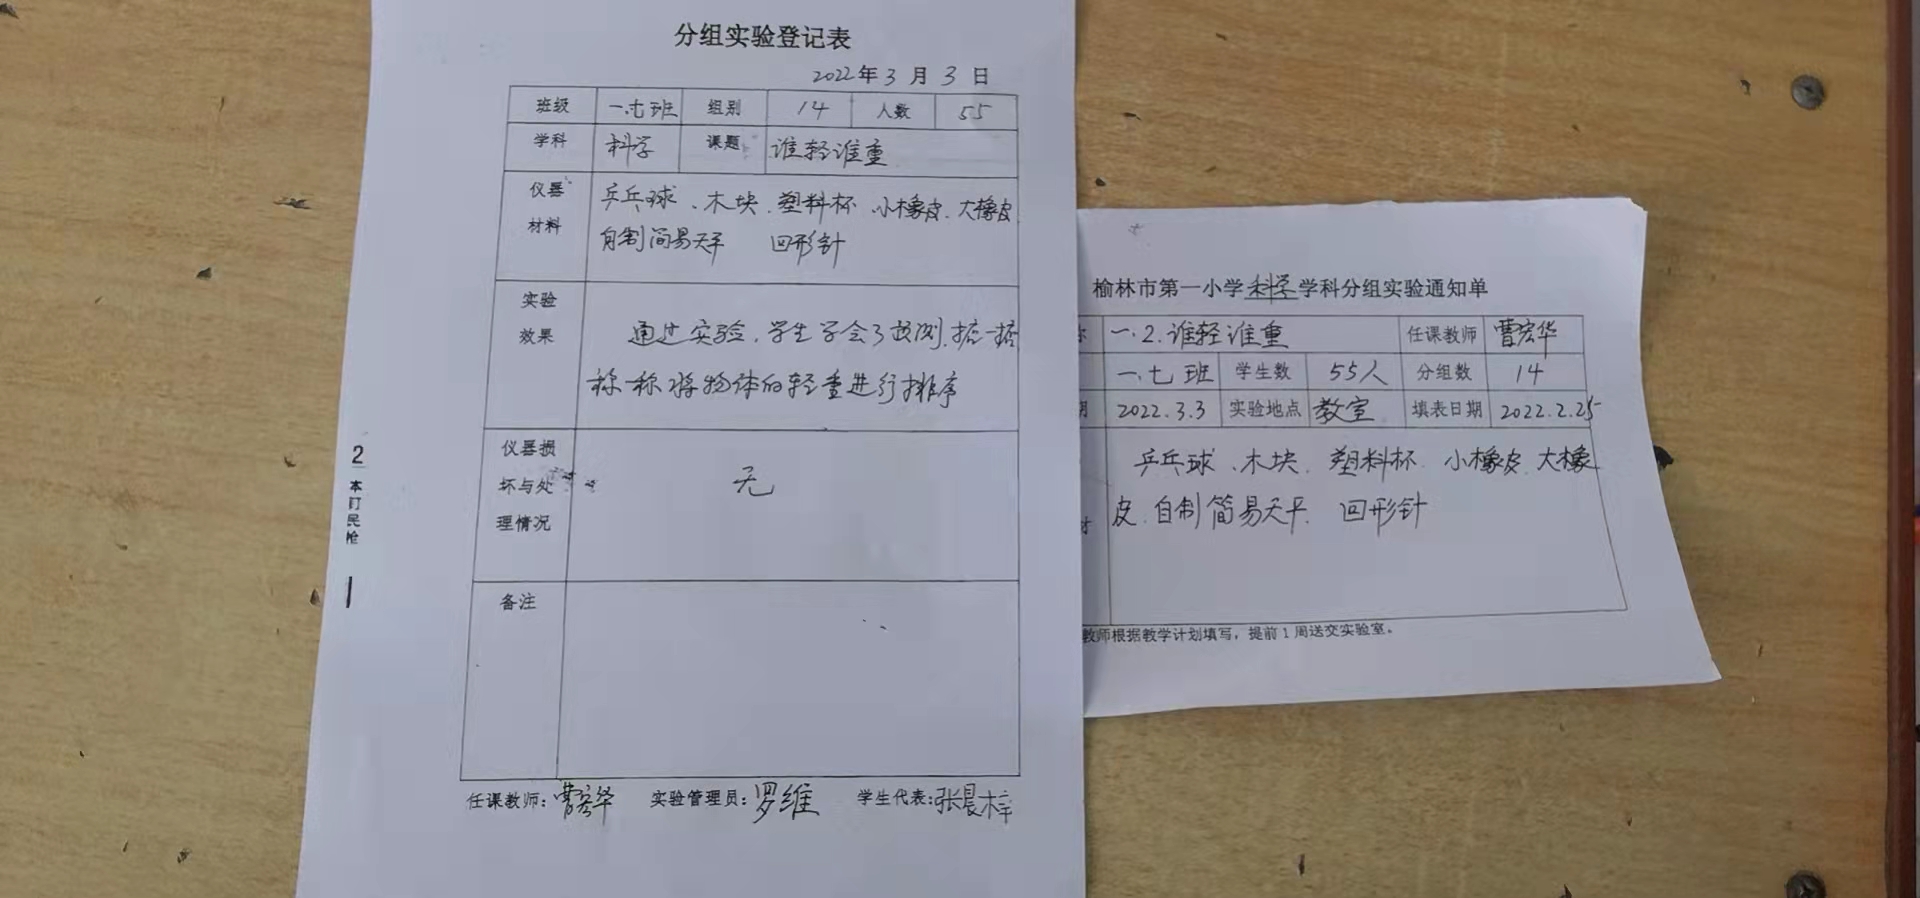 分组实验登记表
2022年3月3日
班级 一.七班 组别 14 人数 55
学科 科学 课题 谁轻谁重
仪器材料 乒乓球、木块、塑料杯、小橡皮、大橡皮
自制简易天平 回形针
实验效果 通过实验,学生学会了预测、掂一掂
称一称将物体的轻重进行排序
仪器损坏与处理情况 无
备注
任课教师:曹宏华 实验管理员:罗维 学生代表:张晨梓
2
榆林市第一小学科学学科分组实验通知单
一.2.谁轻谁重 任课教师 曹宏华
一.七班 学生数 55人 分组数 14
期 2022.3.3 实验地点 教室 填表日期 2022.2.25
乒乓球、木块、塑料杯、小橡皮、大橡
皮、自制简易天平、回形针
教师根据教学计划填写,提前1周送交实验室。